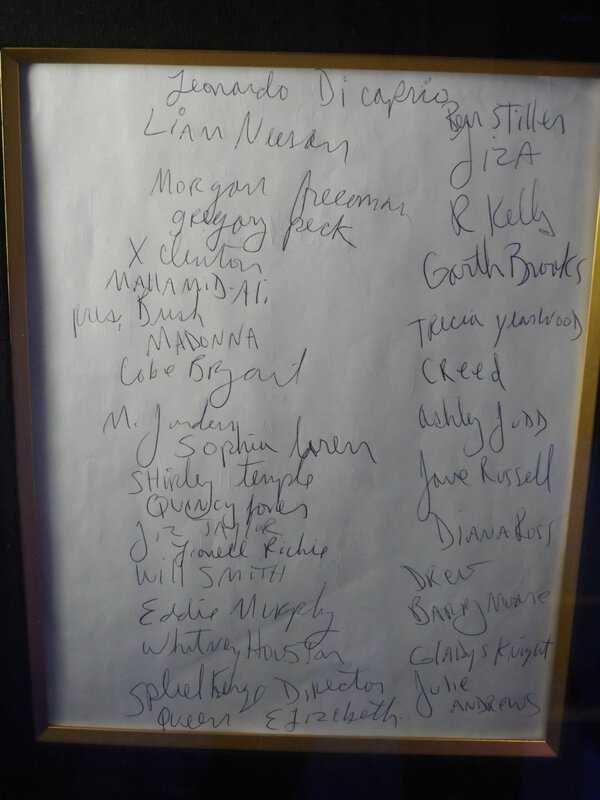 Leonardo Di caprio
Liam Neeson
Morgan freeman
gregory peck
X clinton
MAHAMID-Ali
pres, Bush
MADONNA
Cobe Bryant
M. Jordan
Sophia loren
SHirley temple
QUINCY Jones
Liz TAYLOR
Lionell Richie
Will SMITH
Eddie Murphy
Whitney Houstan
Director
Queen Elizebeth
Ben Stiller
LIZA
R Kelly
Garth Brooks
TRecia yearwood
CReed
ashley JUDD
Jane Russell
DIANA Ross
DREW
BaryMore
GLadys Knight
Julie
ANDREWS